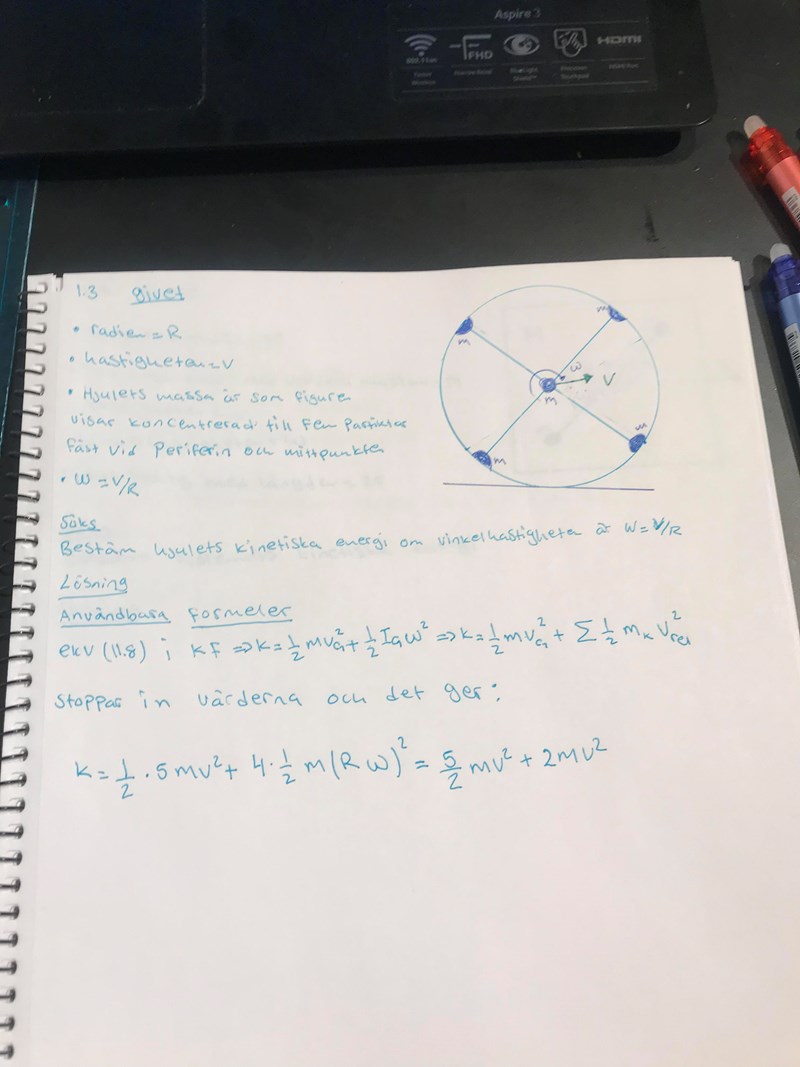 Aspire 3
FHD
HDMI
1.3 givet
• radien = R
• hastigheten = V
• Hjulets massa är som figuren
visar koncentrerad till fem Partiklar
fäst vid Periferin och mittpunkten
• ω = V/R
m
m
ω
V
m
m
m
Söks
Bestäm hjulets kinetiska energi om vinkelhastigheten är ω = V/R
Lösning
Användbara formeler
ekv (11.8) i KF ⇒ K = 1/2 m v_G² + 1/2 I_G ω² ⇒ K = 1/2 m v_G² + Σ 1/2 m_k v_rel²
Stoppar in värderna och det ger:
K = 1/2 · 5mv² + 4 · 1/2 m(Rω)² = 5/2 mv² + 2mv²